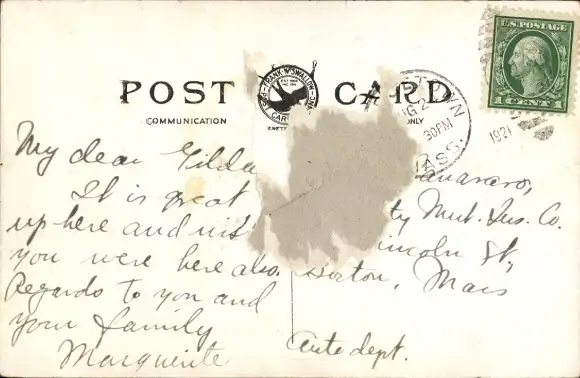 POST CARD
COMMUNICATION
ONLY
FRANK SWALLOW
U.S. POSTAGE
1 CENT 1
WN
30 PM
1921
MASS.
My dear Gilda
It is great
up here and wish
you were here also.
Regards to you and
your family
Marguerite
ty Mut. Ins. Co.
incoln St,
Boston, Mass
Auto dept.